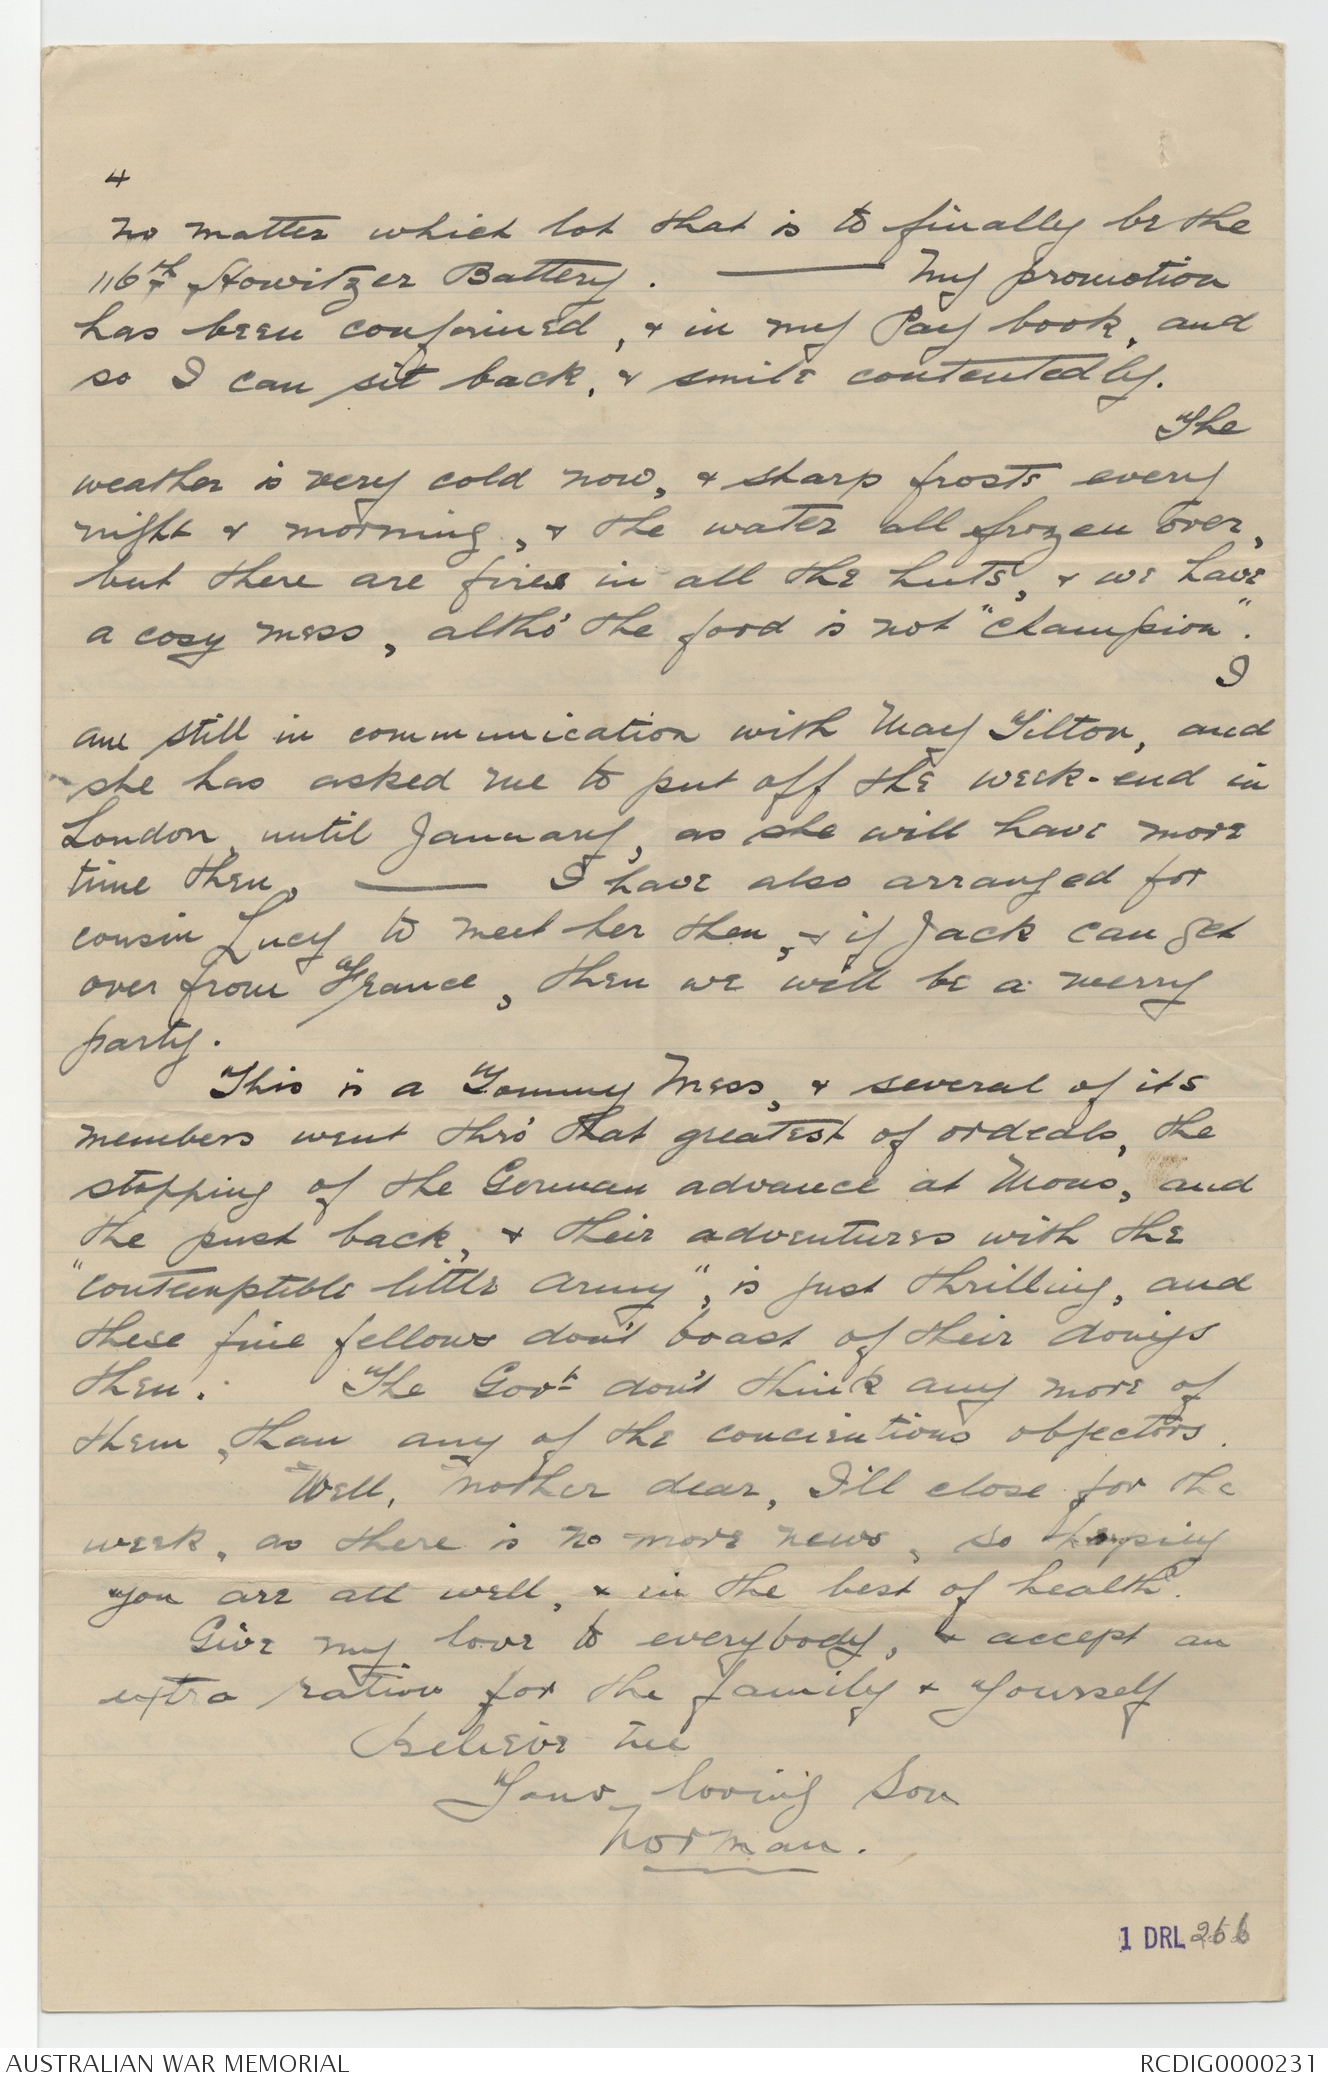 4
no matter which lot that is to finally be the
116th Howitzer Battery. —— My promotion
has been confirmed, & in my Pay book, and
so I can sit back, & smile contentedly.
The
weather is very cold now, & sharp frosts every
night & morning, & the water all frozen over,
but there are fires in all the huts, & we have
a cosy mess, altho' the food is not "champion".
I
am still in communication with May Tilton, and
she has asked me to put off the week-end in
London, until January, as she will have more
time then. —— I have also arranged for
cousin Lucy to meet her then, & if Jack can get
over from France, then we will be a merry
party.
This is a Tommy Mess, & several of its
members went thro' that greatest of ordeals, the
stopping of the German advance at Mons, and
the push back, & their adventures with the
"contemptible little Army", is just thrilling, and
these fine fellows don't boast of their doings
then. The Govt don't think any more of
them, than any of the concientious objectors.
Well, Mother dear, I'll close for the
week, as there is no more news, so hoping
you are all well, & in the best of health.
Give my love to everybody, & accept an
extra ration for the family & yourself
Believe me
Your loving Son
Norman.
1 DRL 256
AUSTRALIAN WAR MEMORIAL
RCDIG0000231